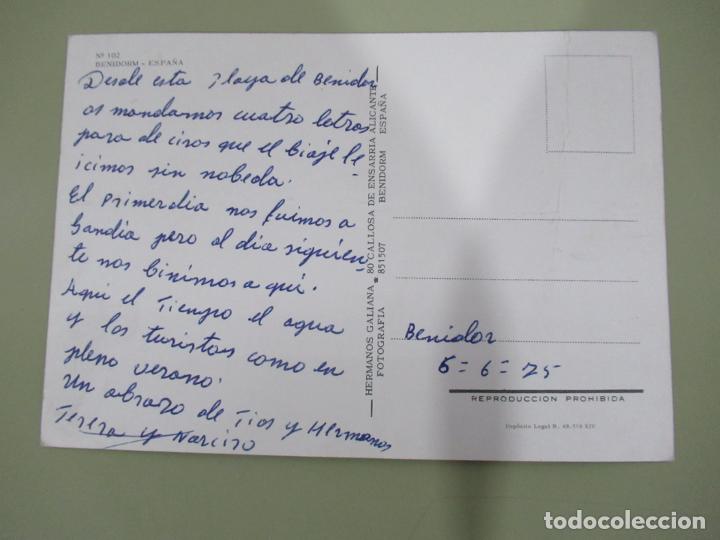 Nº 102
BENIDORM - ESPAÑA
Desde esta Playa de Benidor
os mandamos cuatro letras
para de ciros que el biaje le
icimos sin nobeda.
El primerdia nos fuimos a
Gandia pero al dia siguien-
te nos binimos a qui.
Aqui el Tiempo el agua
y los turistas como en
pleno verano.
Un abrazo de Tios y Hermanos
Teresa y Narciso
HERMANOS GALIANA 80 CALLOSA DE ENSARRIA ALICANTE
FOTOGRAFIA 851507 BENIDORM ESPAÑA
Benidor
6=6=75
REPRODUCCION PROHIBIDA
Depósito Legal B.
todocoleccion
todocoleccion.net